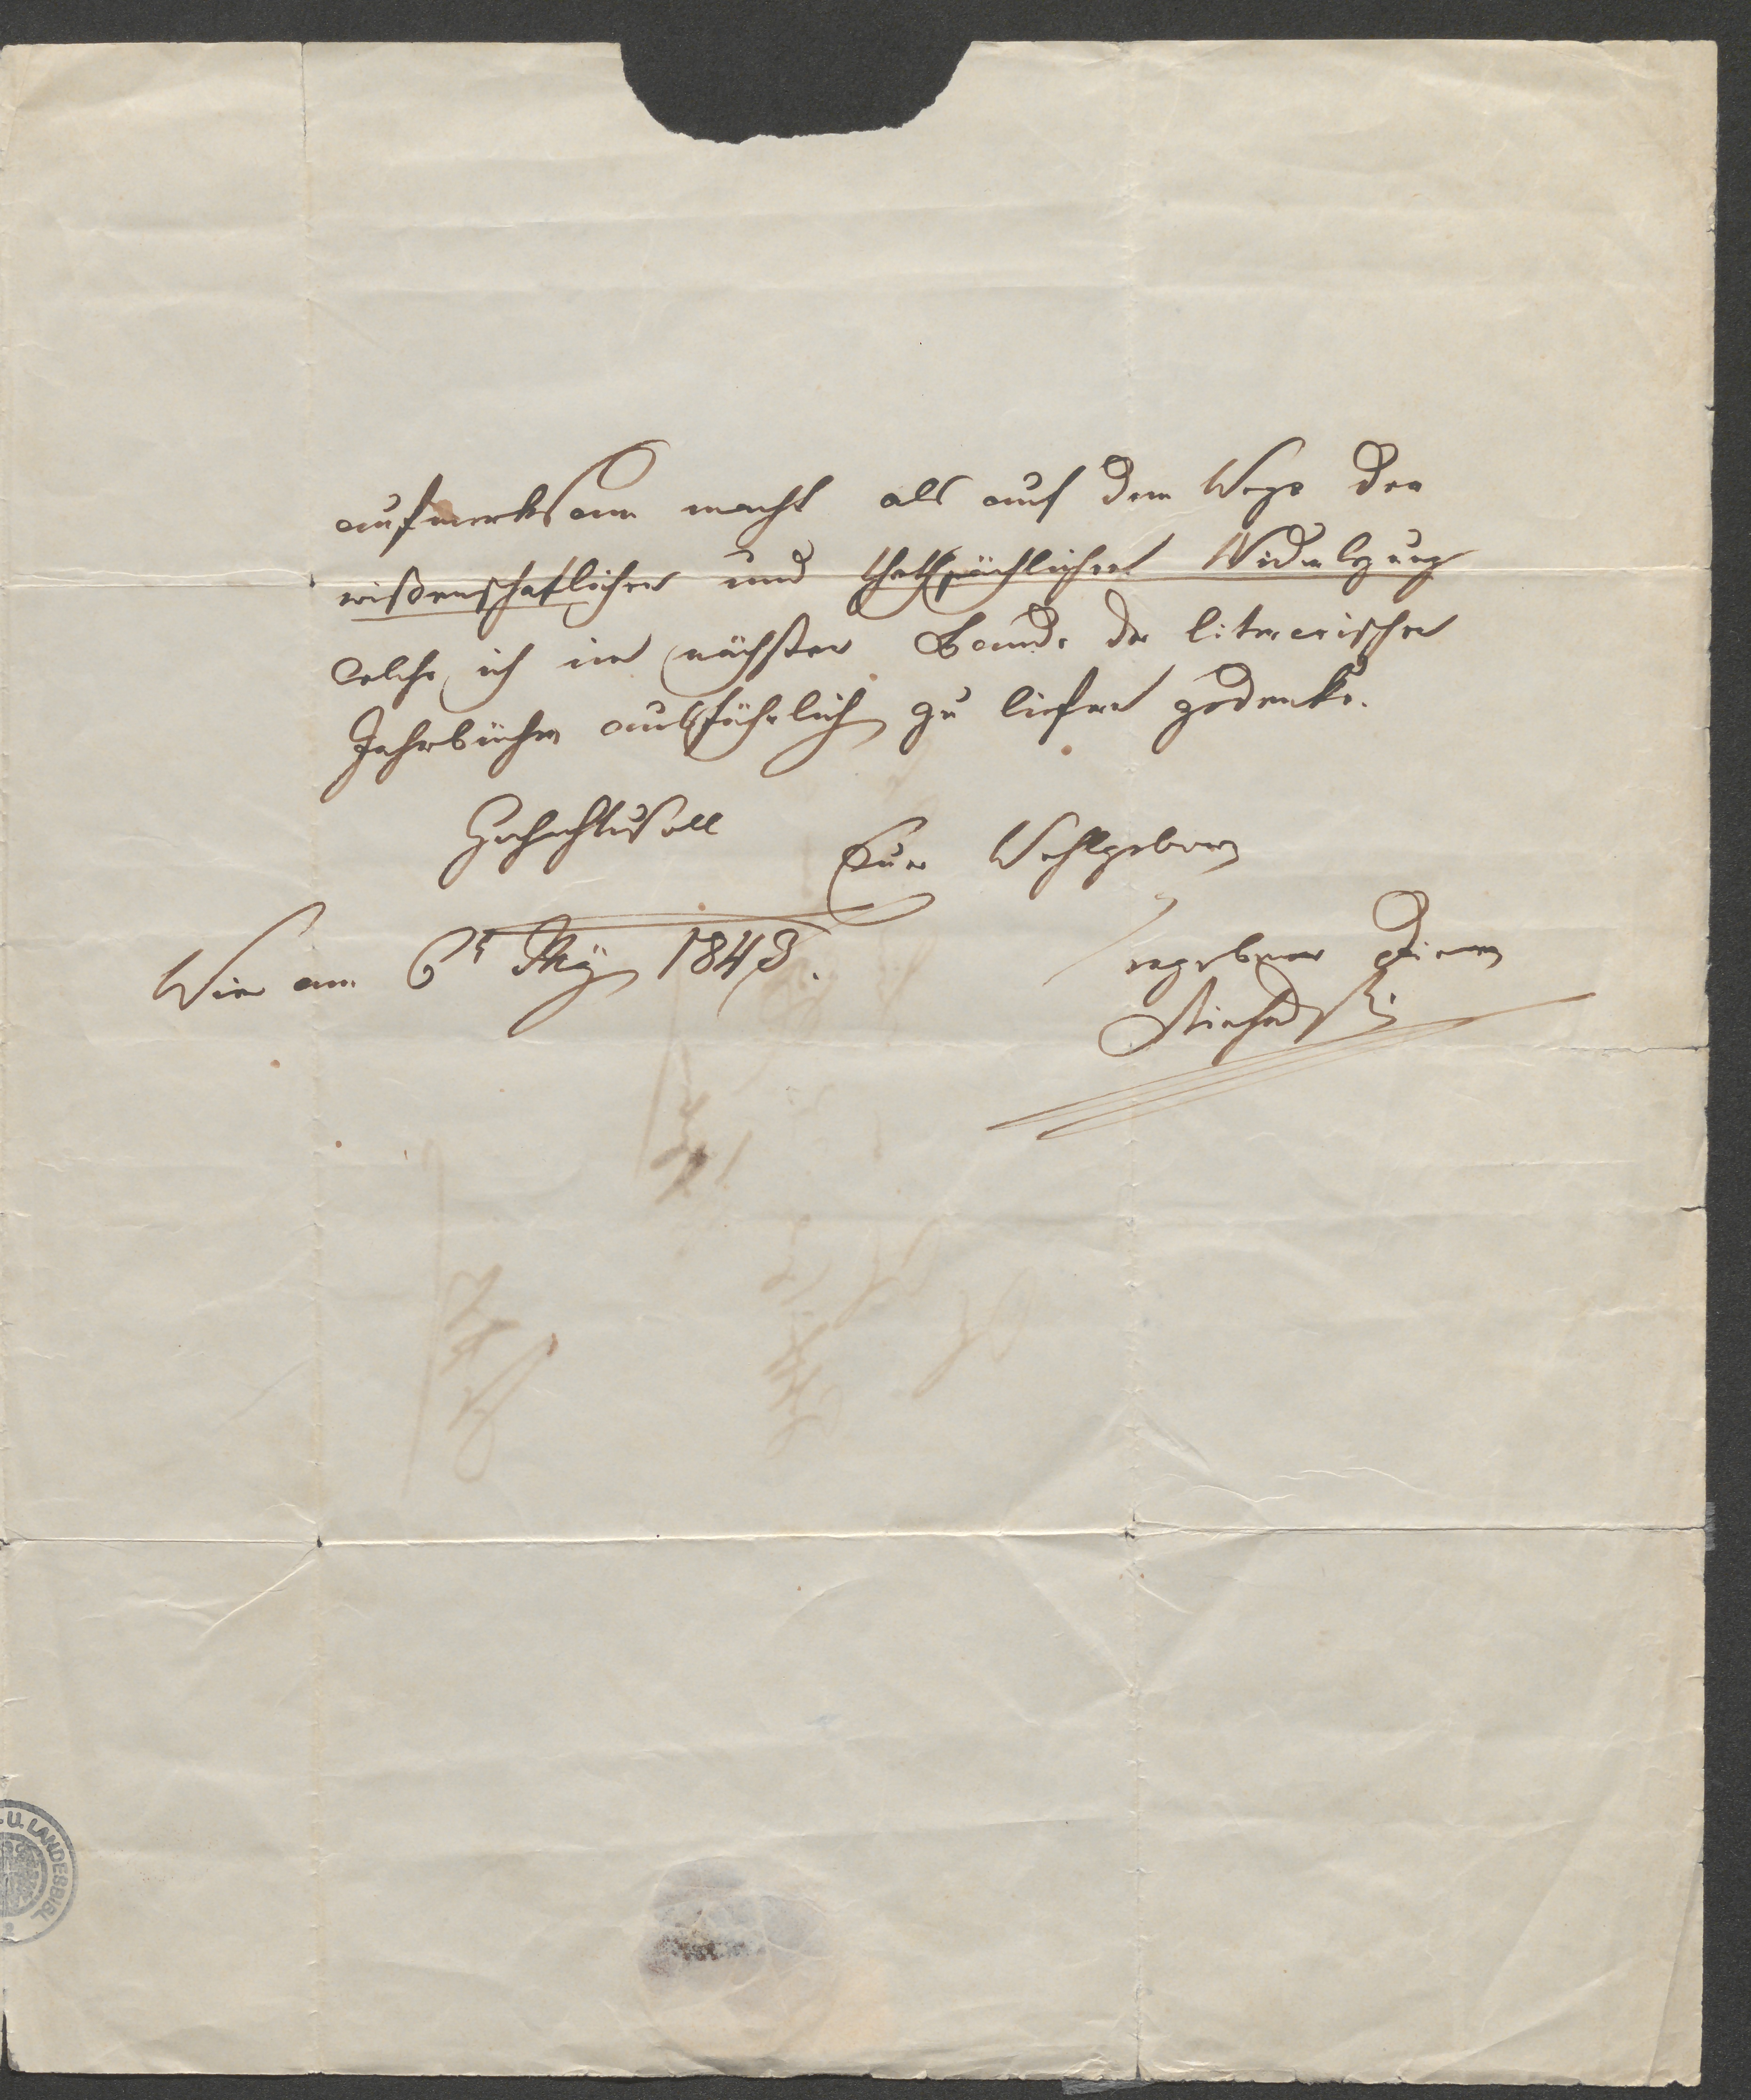 aufmerksam macht als auf dem Wege der
wißenschaftlichen und thatsächlichen Widerlegung
welche ich im nächsten Bande der literarischen
Jahrbücher ausführlich zu liefern gedenke.
Hochachtungsvoll
Euer Wohlgeboren
Wien am 6t May 1843.
ergebener Diener
U. LANDESBIBL